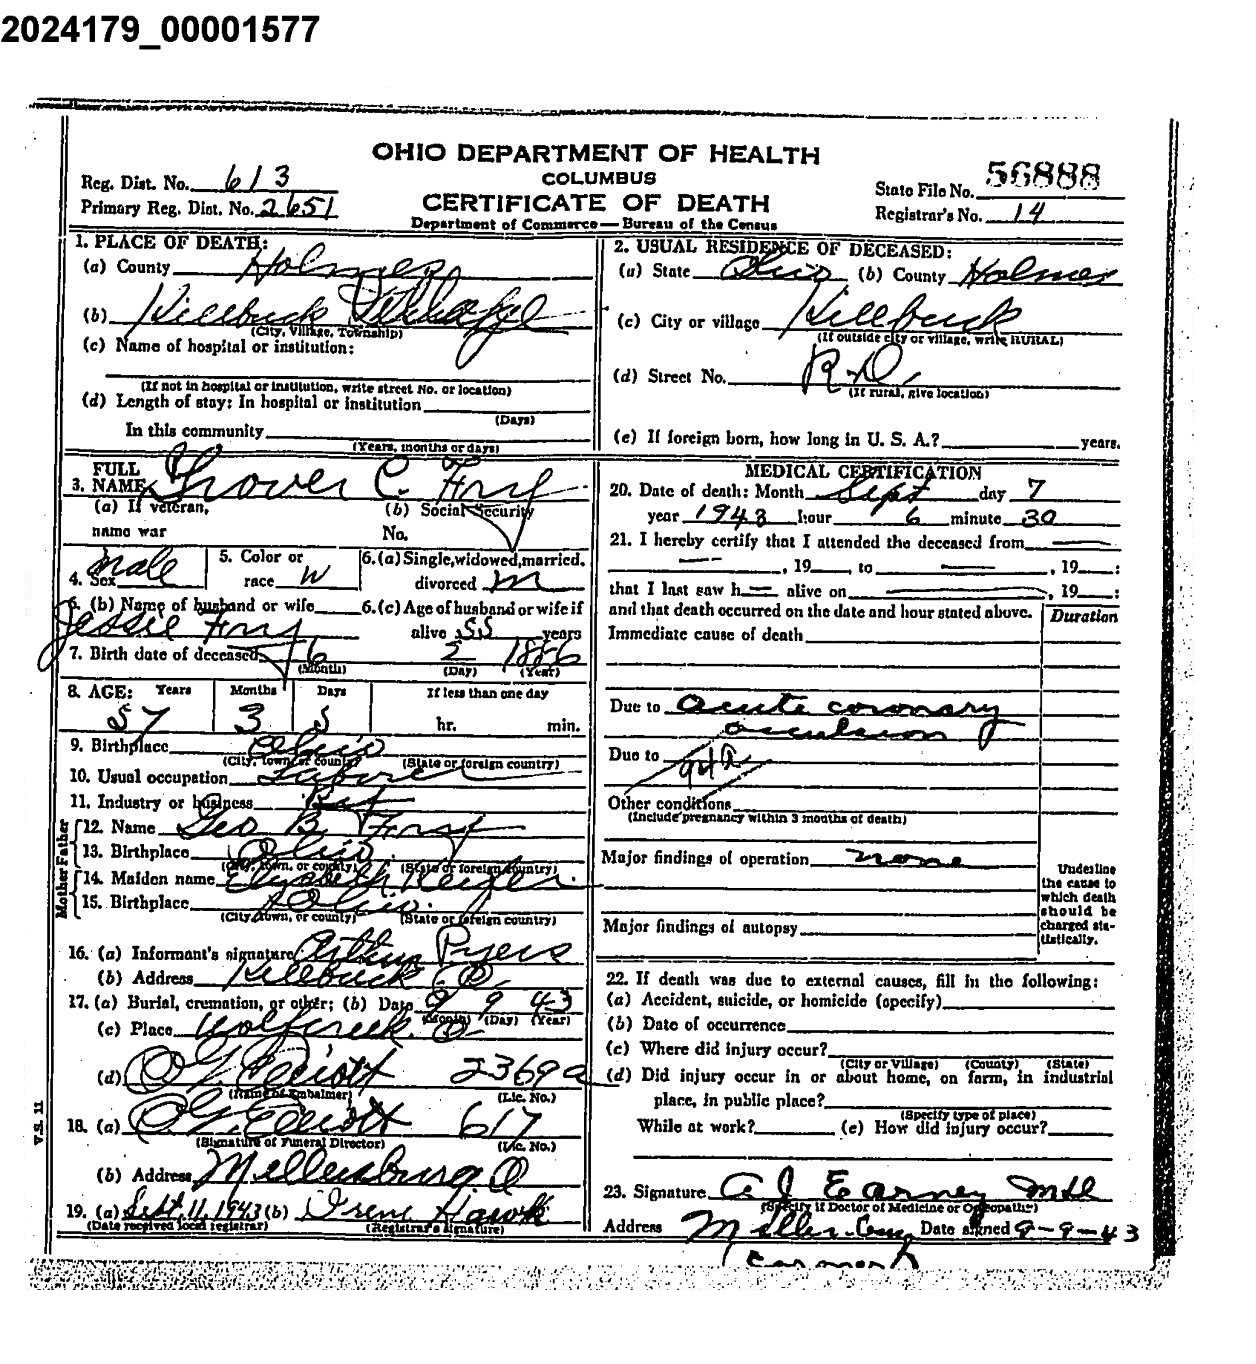 2024179_00001577
OHIO DEPARTMENT OF HEALTH
COLUMBUS
CERTIFICATE OF DEATH
Department of Commerce — Bureau of the Census
Reg. Dist. No. 613
Primary Reg. Dist. No. 2651
State File No. 56888
Registrar's No. 14
1. PLACE OF DEATH:
(a) County Holmes
(b) Killbuck
(City, Village, Township)
(c) Name of hospital or institution:
(If not in hospital or institution, write street No. or location)
(d) Length of stay: In hospital or institution
(Days)
In this community
(Years, months or days)
2. USUAL RESIDENCE OF DECEASED:
(a) State Ohio (b) County Holmes
(c) City or village Killbuck
(If outside city or village, write RURAL)
(d) Street No. R.D.
(If rural, give location)
(e) If foreign born, how long in U. S. A.? years.
FULL
3. NAME Grover C. Fry
(a) If veteran,
name war
(b) Social Security
No.
4. Sex Male
5. Color or
race W
6. (a) Single, widowed, married,
divorced M
6. (b) Name of husband or wife
Jessie Fry
6. (c) Age of husband or wife if
alive 55 years
7. Birth date of deceased 6 2 1886
(Month) (Day) (Year)
8. AGE: Years Months Days If less than one day
57 3 5 hr. min.
9. Birthplace Ohio
(City, town or county) (State or foreign country)
10. Usual occupation Laborer
11. Industry or business
Father
12. Name Geo B. Fry
13. Birthplace Ohio
(City, town, or county) (State or foreign country)
Mother
14. Maiden name Elizabeth
15. Birthplace Ohio
(City, town, or county) (State or foreign country)
16. (a) Informant's signature Arthur
(b) Address Killbuck O.
17. (a) Burial, cremation, or other; (b) Date 9 9 43
(Month) (Day) (Year)
(c) Place Wolfcreek O
(d) O G Elliott 2369a
(Name of Embalmer) (Lic. No.)
18. (a) O G Elliott 617
(Signature of Funeral Director) (Lic. No.)
(b) Address Millersburg O
19. (a) Sept. 11, 1943 (b) Irene Hawk
(Date received local registrar) (Registrar's signature)
V.S. 11
MEDICAL CERTIFICATION
20. Date of death: Month Sept day 7
year 1943 hour 6 minute 30
21. I hereby certify that I attended the deceased from —
— , 19 , to — , 19 :
that I last saw h— alive on — , 19 :
and that death occurred on the date and hour stated above.
Duration
Immediate cause of death
Due to acute coronary
occlusion
Due to 94a
Other conditions
(Include pregnancy within 3 months of death)
Major findings of operation none
Major findings of autopsy
Underline
the cause to
which death
should be
charged sta-
tistically.
22. If death was due to external causes, fill in the following:
(a) Accident, suicide, or homicide (specify)
(b) Date of occurrence
(c) Where did injury occur?
(City or Village) (County) (State)
(d) Did injury occur in or about home, on farm, in industrial
place, in public place?
(Specify type of place)
While at work? (e) How did injury occur?
23. Signature A J Earney MD
(Specify if Doctor of Medicine or Osteopathy)
Address Date signed 9-9-43